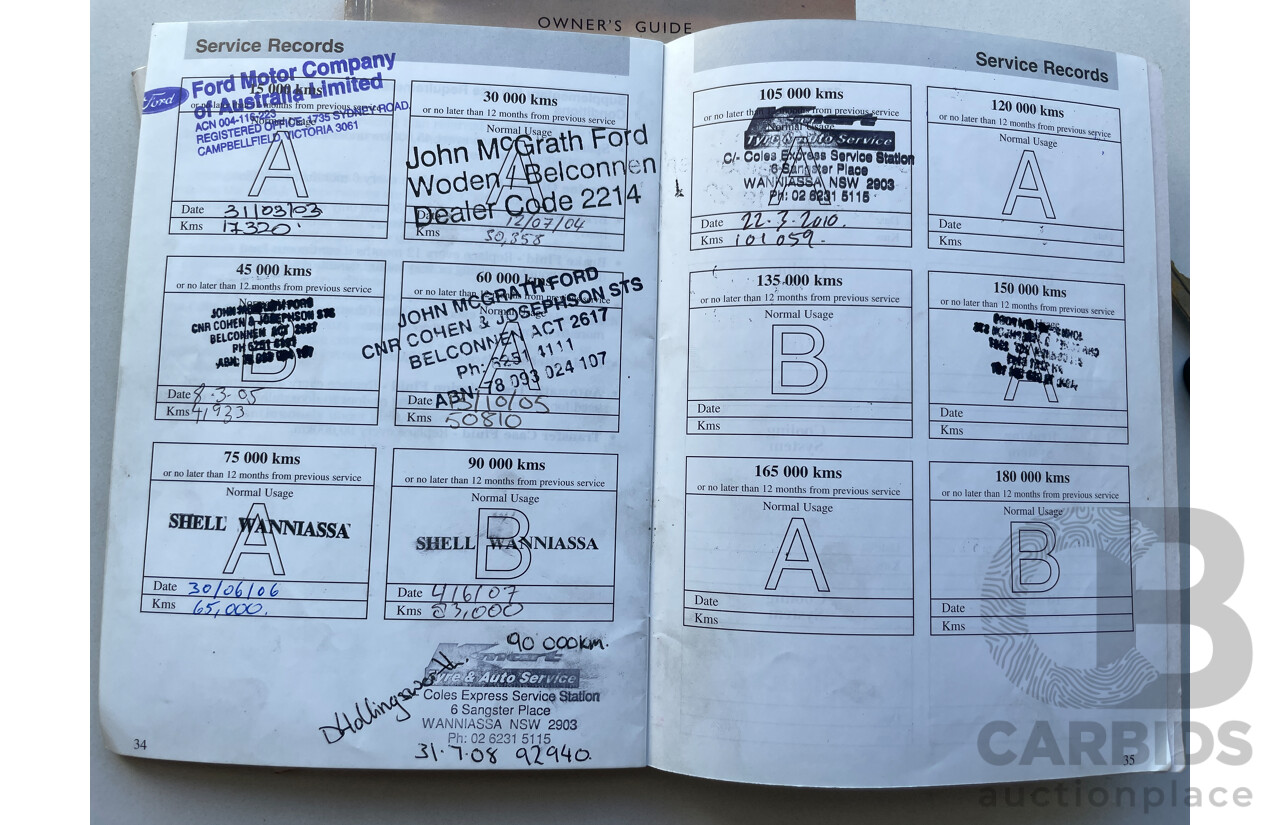 OWNER'S GUIDE
Service Records
Ford
Ford Motor Company
of Australia Limited
ACN 004-116-223
REGISTERED OFFICE, 1735 SYDNEY ROAD
CAMPBELLFIELD, VICTORIA 3061
15 000 kms
or no later than 12 months from previous service
Normal Usage
A
Date 31/03/03
Kms 17320
30 000 kms
or no later than 12 months from previous service
Normal Usage
A
John McGrath Ford
Woden / Belconnen
Dealer Code 2214
Date 12/07/04
Kms 30,358
45 000 kms
or no later than 12 months from previous service
Normal Usage
JOHN McGRATH FORD
CNR COHEN & JOSEPHSON STS
BELCONNEN ACT 2617
B
Date 8.3.05
Kms 41,933
60 000 kms
or no later than 12 months from previous service
Normal Usage
A
JOHN MCGRATH FORD
CNR COHEN & JOSEPHSON STS
BELCONNEN ACT 2617
Ph: 6251 1111
ABN: 78 093 024 107
Date 13/10/05
Kms 50810
75 000 kms
or no later than 12 months from previous service
Normal Usage
A
SHELL WANNIASSA
Date 30/06/06
Kms 65,000.
90 000 kms
or no later than 12 months from previous service
Normal Usage
B
SHELL WANNIASSA
Date 4/6/07
Kms 83,000
90 000km.
Kmart
Tyre & Auto Service
Coles Express Service Station
6 Sangster Place
WANNIASSA NSW 2903
Ph: 02 6231 5115
DHollingsworth.
31.7.08 92940.
34
Service Records
105 000 kms
or no later than 12 months from previous service
Normal Usage
A
Kmart
Tyre & Auto Service
C/- Coles Express Service Station
6 Sangster Place
WANNIASSA NSW 2903
Ph: 02 6231 5115
Date 22.3.2010.
Kms 101059.
120 000 kms
or no later than 12 months from previous service
Normal Usage
A
Date
Kms
135 000 kms
or no later than 12 months from previous service
Normal Usage
B
Date
Kms
150 000 kms
or no later than 12 months from previous service
Normal Usage
A
Date
Kms
165 000 kms
or no later than 12 months from previous service
Normal Usage
A
Date
Kms
180 000 kms
or no later than 12 months from previous service
Normal Usage
B
Date
Kms
35
CB
CARBIDS
auctionplace